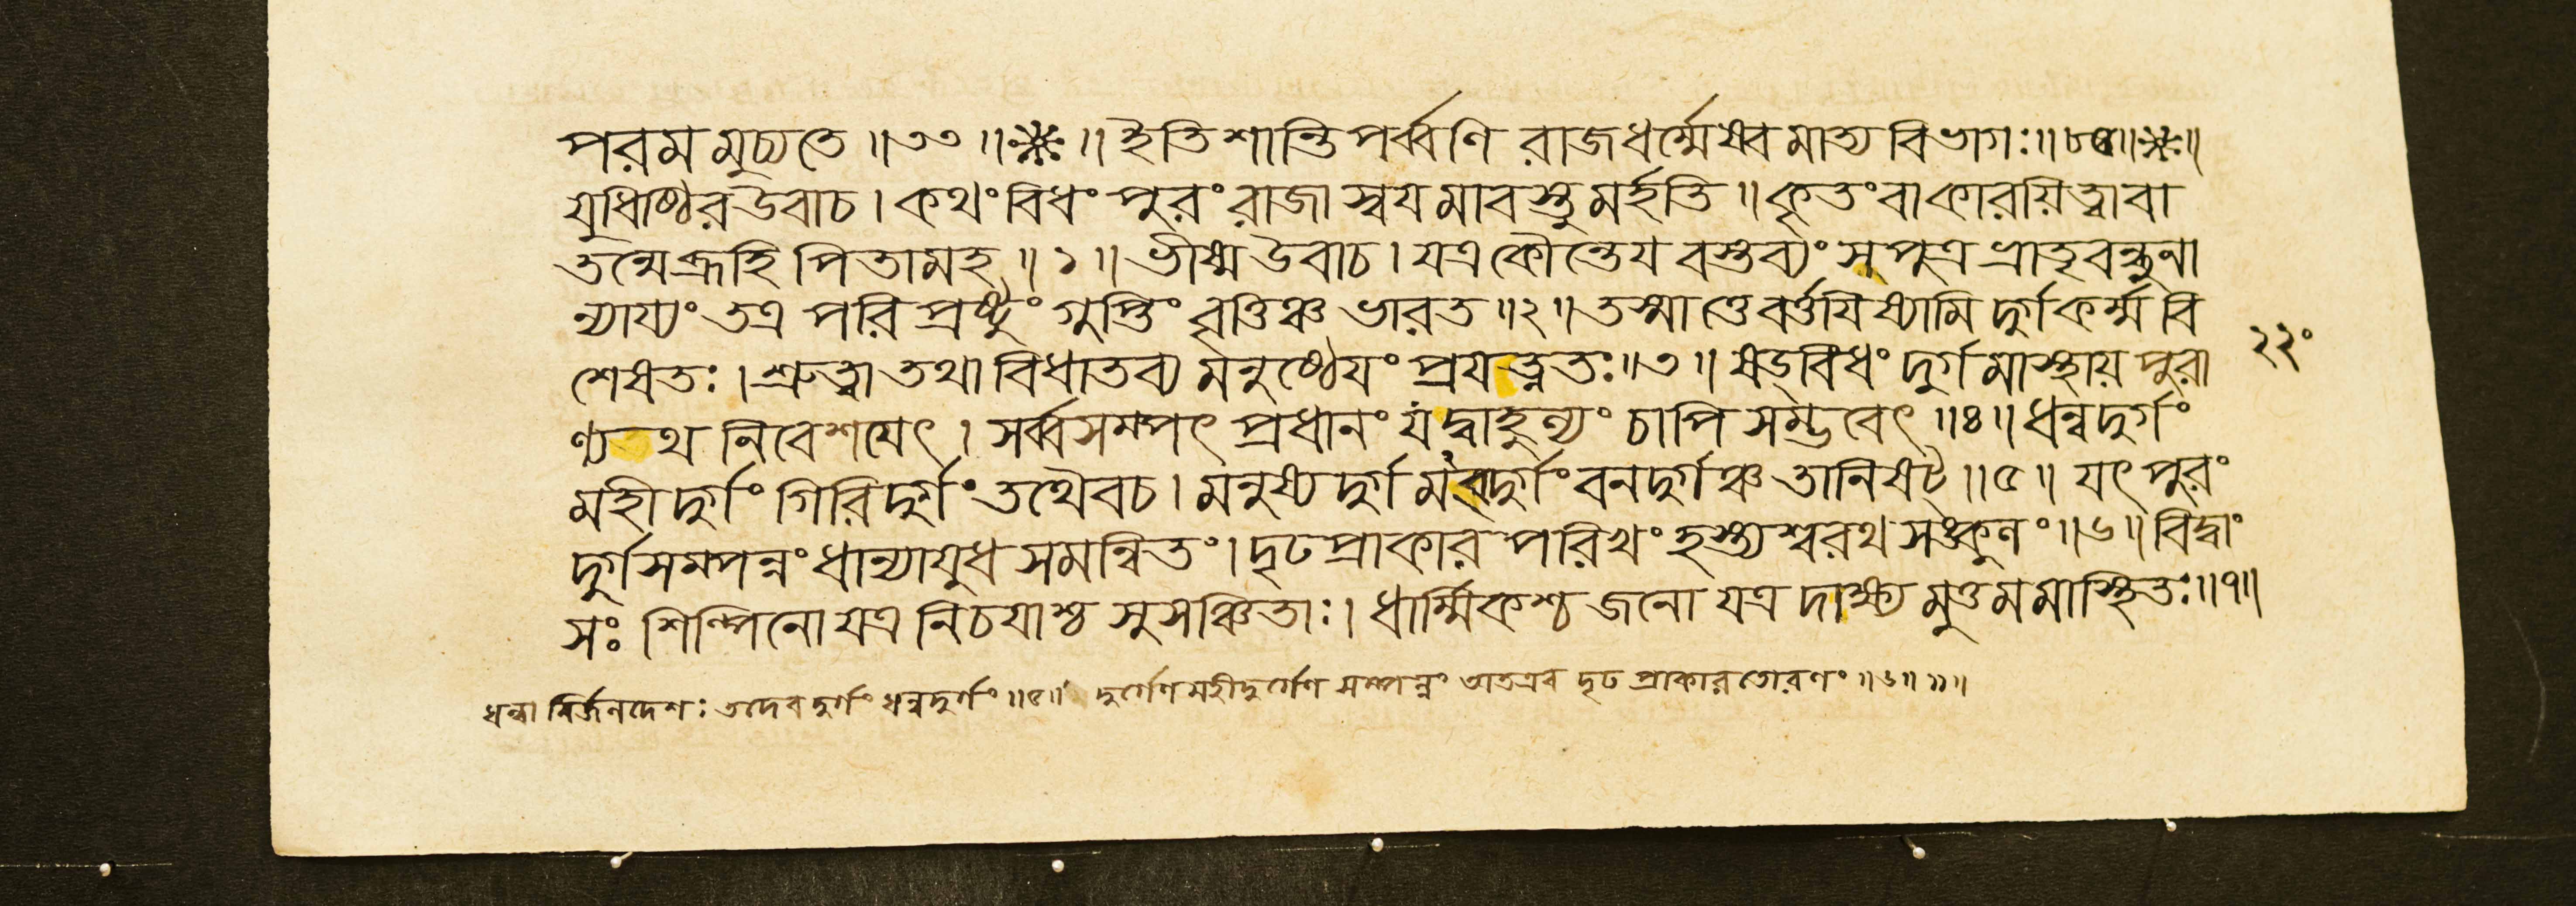 পরমমুচ্যতে ॥৩৩॥ ইতি শান্তিপর্ব্বণি রাজধর্ম্মেষ্বমাত্য বিভাগঃ॥৮৫॥
যুধিষ্ঠির উবাচ। কথংবিধং পুরং রাজা স্বয়মাবস্তুমর্হতি॥ কৃতংবা কারয়িত্বা বা
তন্মে ব্রূহি পিতামহ॥১॥ ভীষ্ম উবাচ। যত্র কৌন্তেয় বস্তব্যং সপুত্র ভ্রাতৃবন্ধুনা
ন্যায্যং তত্র পরিপ্রষ্টুং গুপ্তিং বৃত্তিঞ্চ ভারত॥২॥ তস্মাত্তে বর্ত্তয়িষ্যামি দুর্গকর্ম্ম বি
শেষতঃ। শ্রুত্বা তথা বিধাতব্যমনুষ্ঠেয়ং প্রযত্নতঃ॥৩॥ ষড়্বিধং দুর্গমাস্থায় পুরা
ণ্যথ নিবেশয়েৎ। সর্ব্বসম্পৎ প্রধানং যদ্বাহুল্যং চাপি সম্ভবেৎ॥৪॥ ধন্বদুর্গং
মহীদুর্গং গিরিদুর্গং তথৈবচ। মনুষ্যদুর্গমব্দুর্গং বনদুর্গঞ্চ তানি ষট্॥৫॥ যৎ পুরং
দুর্গসম্পন্নং ধান্যায়ুধ সমন্বিতং। দৃঢপ্রাকার পরিখং হস্ত্যশ্বরথ সঙ্কুলং॥৬॥ বিদ্বাং
সঃ শিল্পিনো যত্র নিচয়াশ্চ সুসঞ্চিতাঃ। ধার্ম্মিকশ্চ জনো যত্র দাক্ষ্যমুত্তমমাস্থিতঃ॥৭॥
২২০
ধন্বা নির্জনদেশঃ তদেব দুর্গং ধন্বদুর্গং॥৫॥ দুর্গেণ মহীদুর্গেণ সম্পন্নং অতএব দৃঢ প্রাকার তোরণং॥৬॥